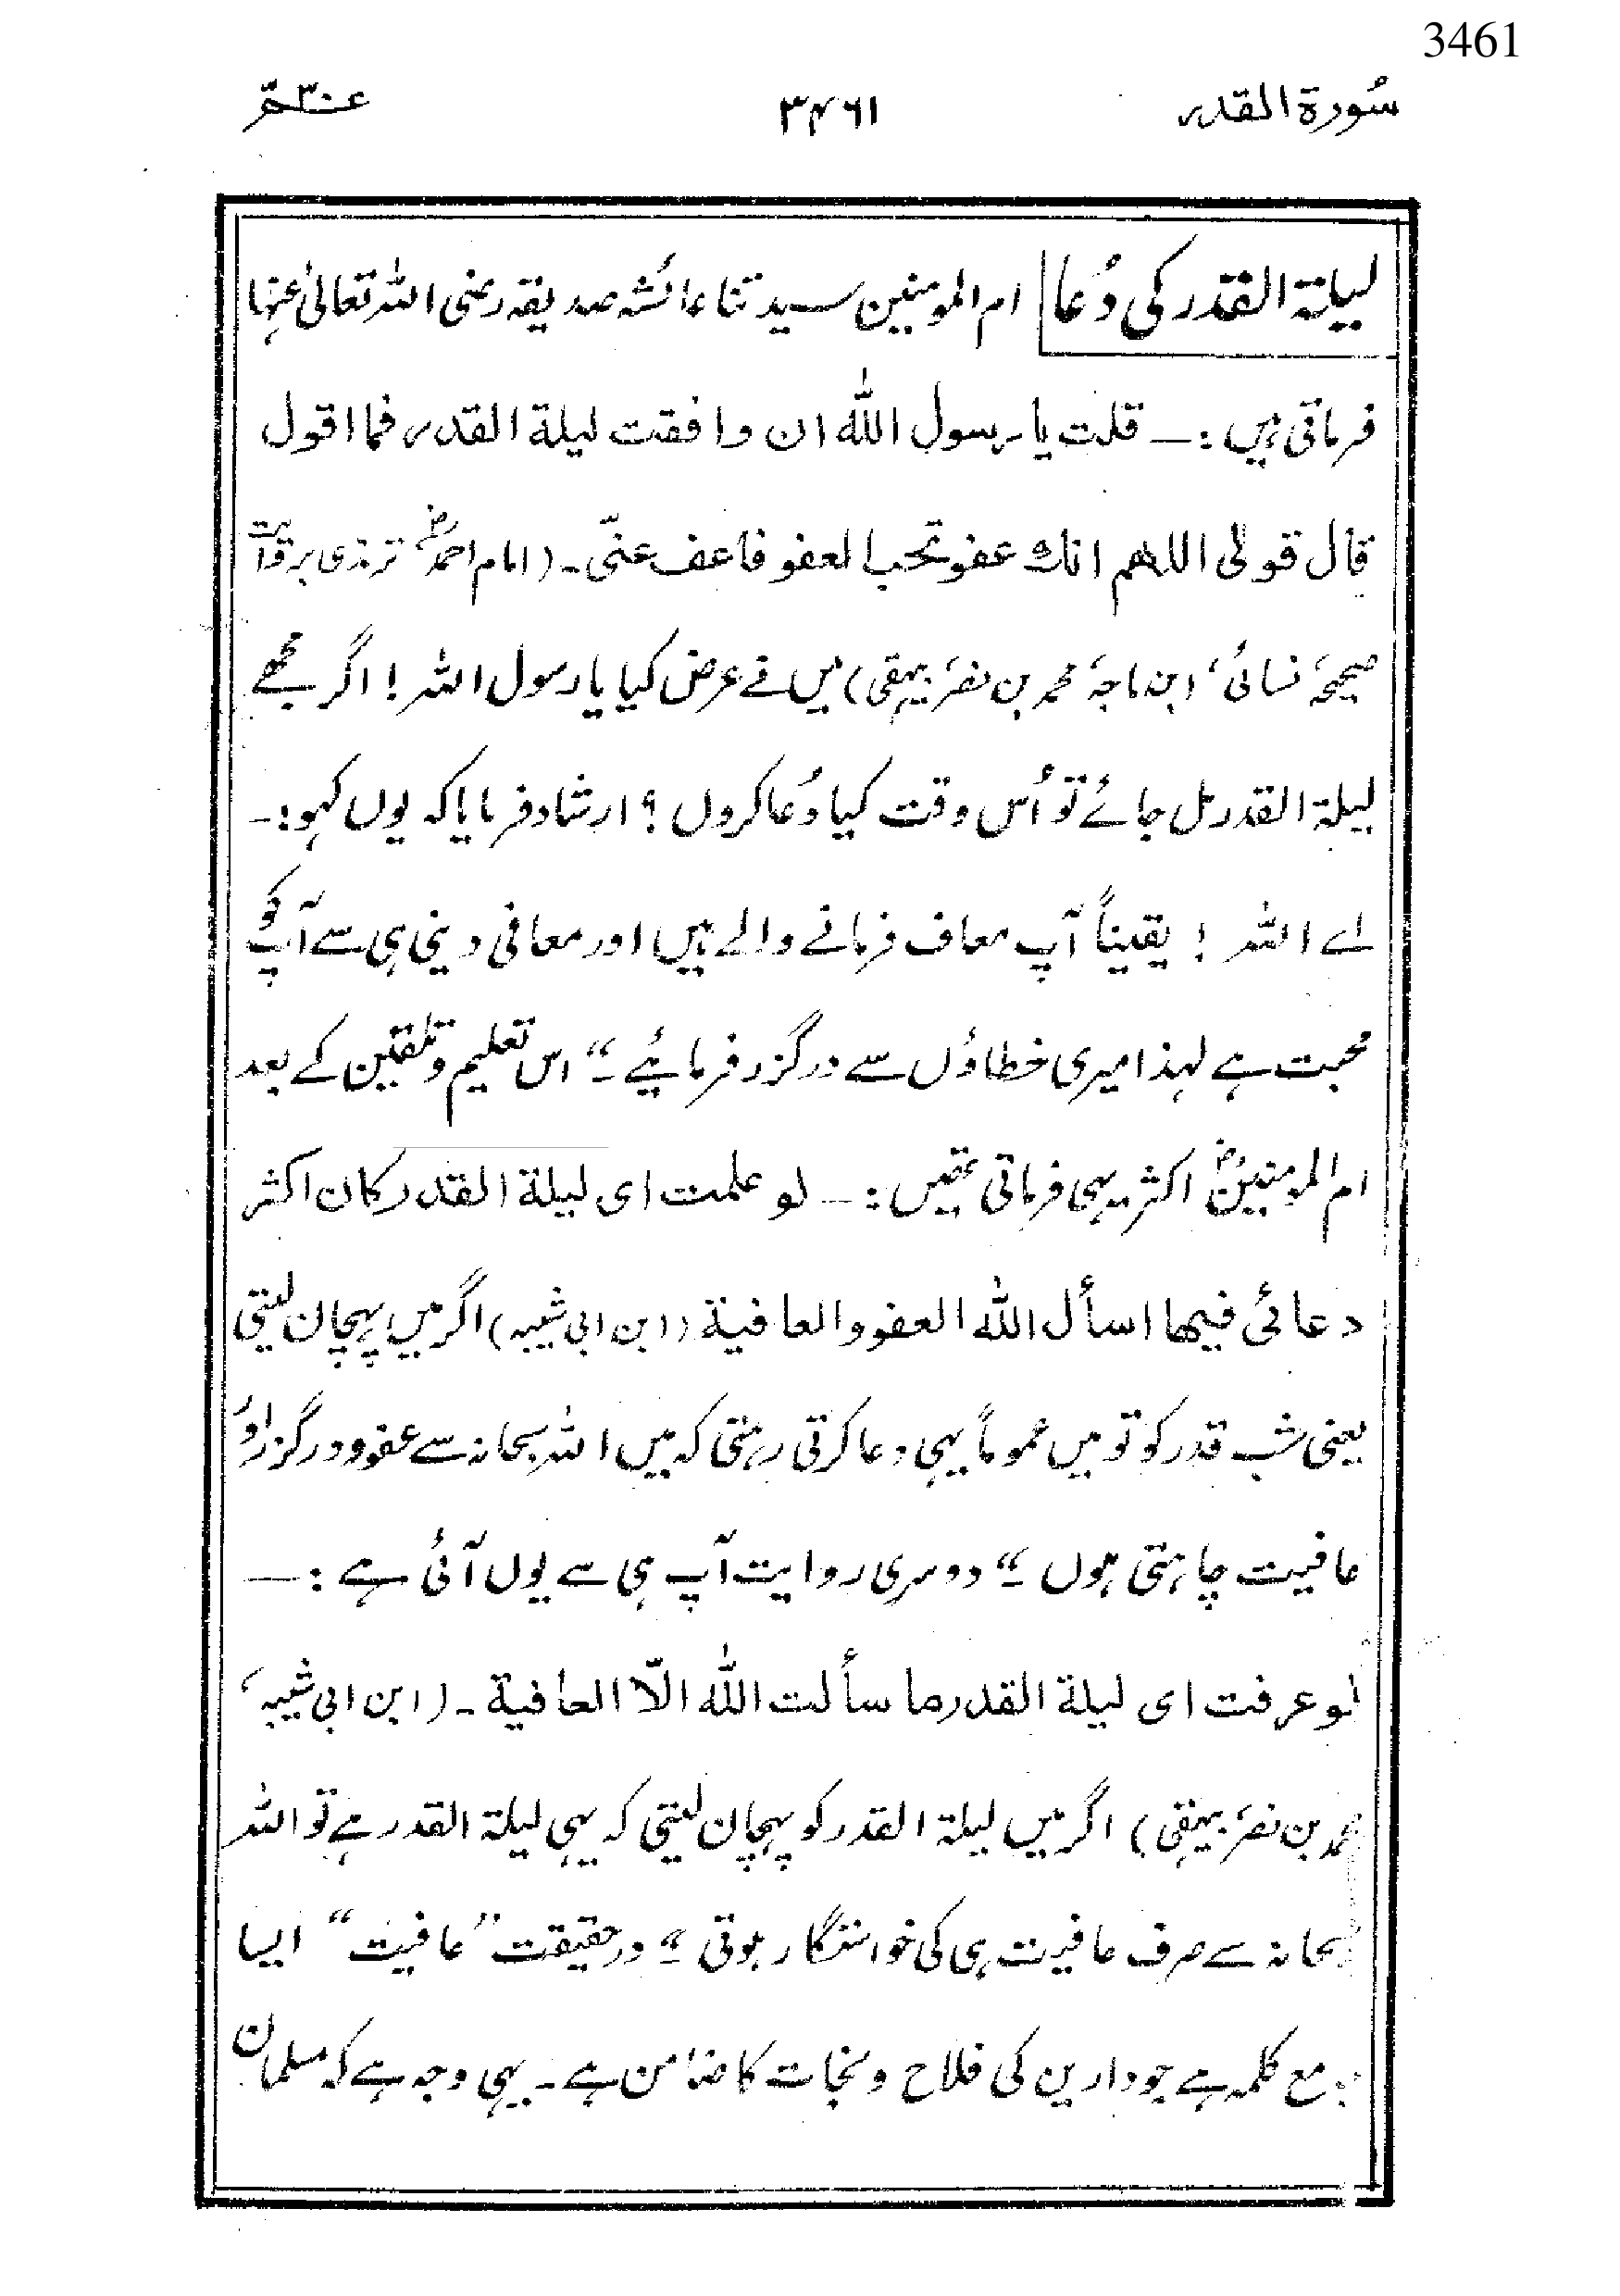 3461
سُورۃ القدر ۳۴۶۱ عمّ ۳۰
لیلۃ القدر کی دُعا ام المومنین سیدتنا عائشہ صدیقہ رضی اللہ تعالیٰ عنہا
فرماتی ہیں :۔ قلت یا رسول اللہ ان وافقت لیلة القدر فما اقول
قال قولی اللھم انك عفو تحب العفو فاعف عنّی۔ (امام احمدؒ ترمذی برقایت
صحیحہ، نسائی، ابن ماجہ، محمد بن نصر، بیہقی) میں نے عرض کیا یا رسول اللہ! اگر مجھے
لیلۃ القدر مل جائے تو اُس وقت کیا دُعا کروں؟ ارشاد فرمایا کہ یوں کہو:۔
اے اللہ! یقیناً آپ معاف فرمانے والے ہیں اور معافی دینی ہی سے آپ کو
محبت ہے لہذا میری خطاؤں سے درگزر فرمائیے۔“ اس تعلیم و تلقین کے بعد
ام المومنینؓ اکثر یہی فرماتی تھیں:۔ لو علمت ای لیلة القدر کان اکثر
دعائی فیھا اسأل اللہ العفو والعافیة (ابن ابی شیبہ) اگر میں پہچان لیتی
یعنی شب قدر کو تو میں عموماً یہی دعا کرتی رہتی کہ میں اللہ سبحانہ سے عفو و درگزر اور
عافیت چاہتی ہوں۔“ دوسری روایت آپ ہی سے یوں آئی ہے :۔
لو عرفت ای لیلة القدر ما سألت اللہ الّا العافیة۔ (ابن ابی شیبہ،
محمد بن نصر، بیہقی) اگر میں لیلۃ القدر کو پہچان لیتی کہ یہی لیلۃ القدر ہے تو اللہ
سبحانہ سے صرف عافیت ہی کی خواستگار ہوتی۔“ درحقیقت ”عافیت“ ایسا
جامع کلمہ ہے جو دارین کی فلاح و نجات کا ضامن ہے۔ یہی وجہ ہے کہ مسلمان